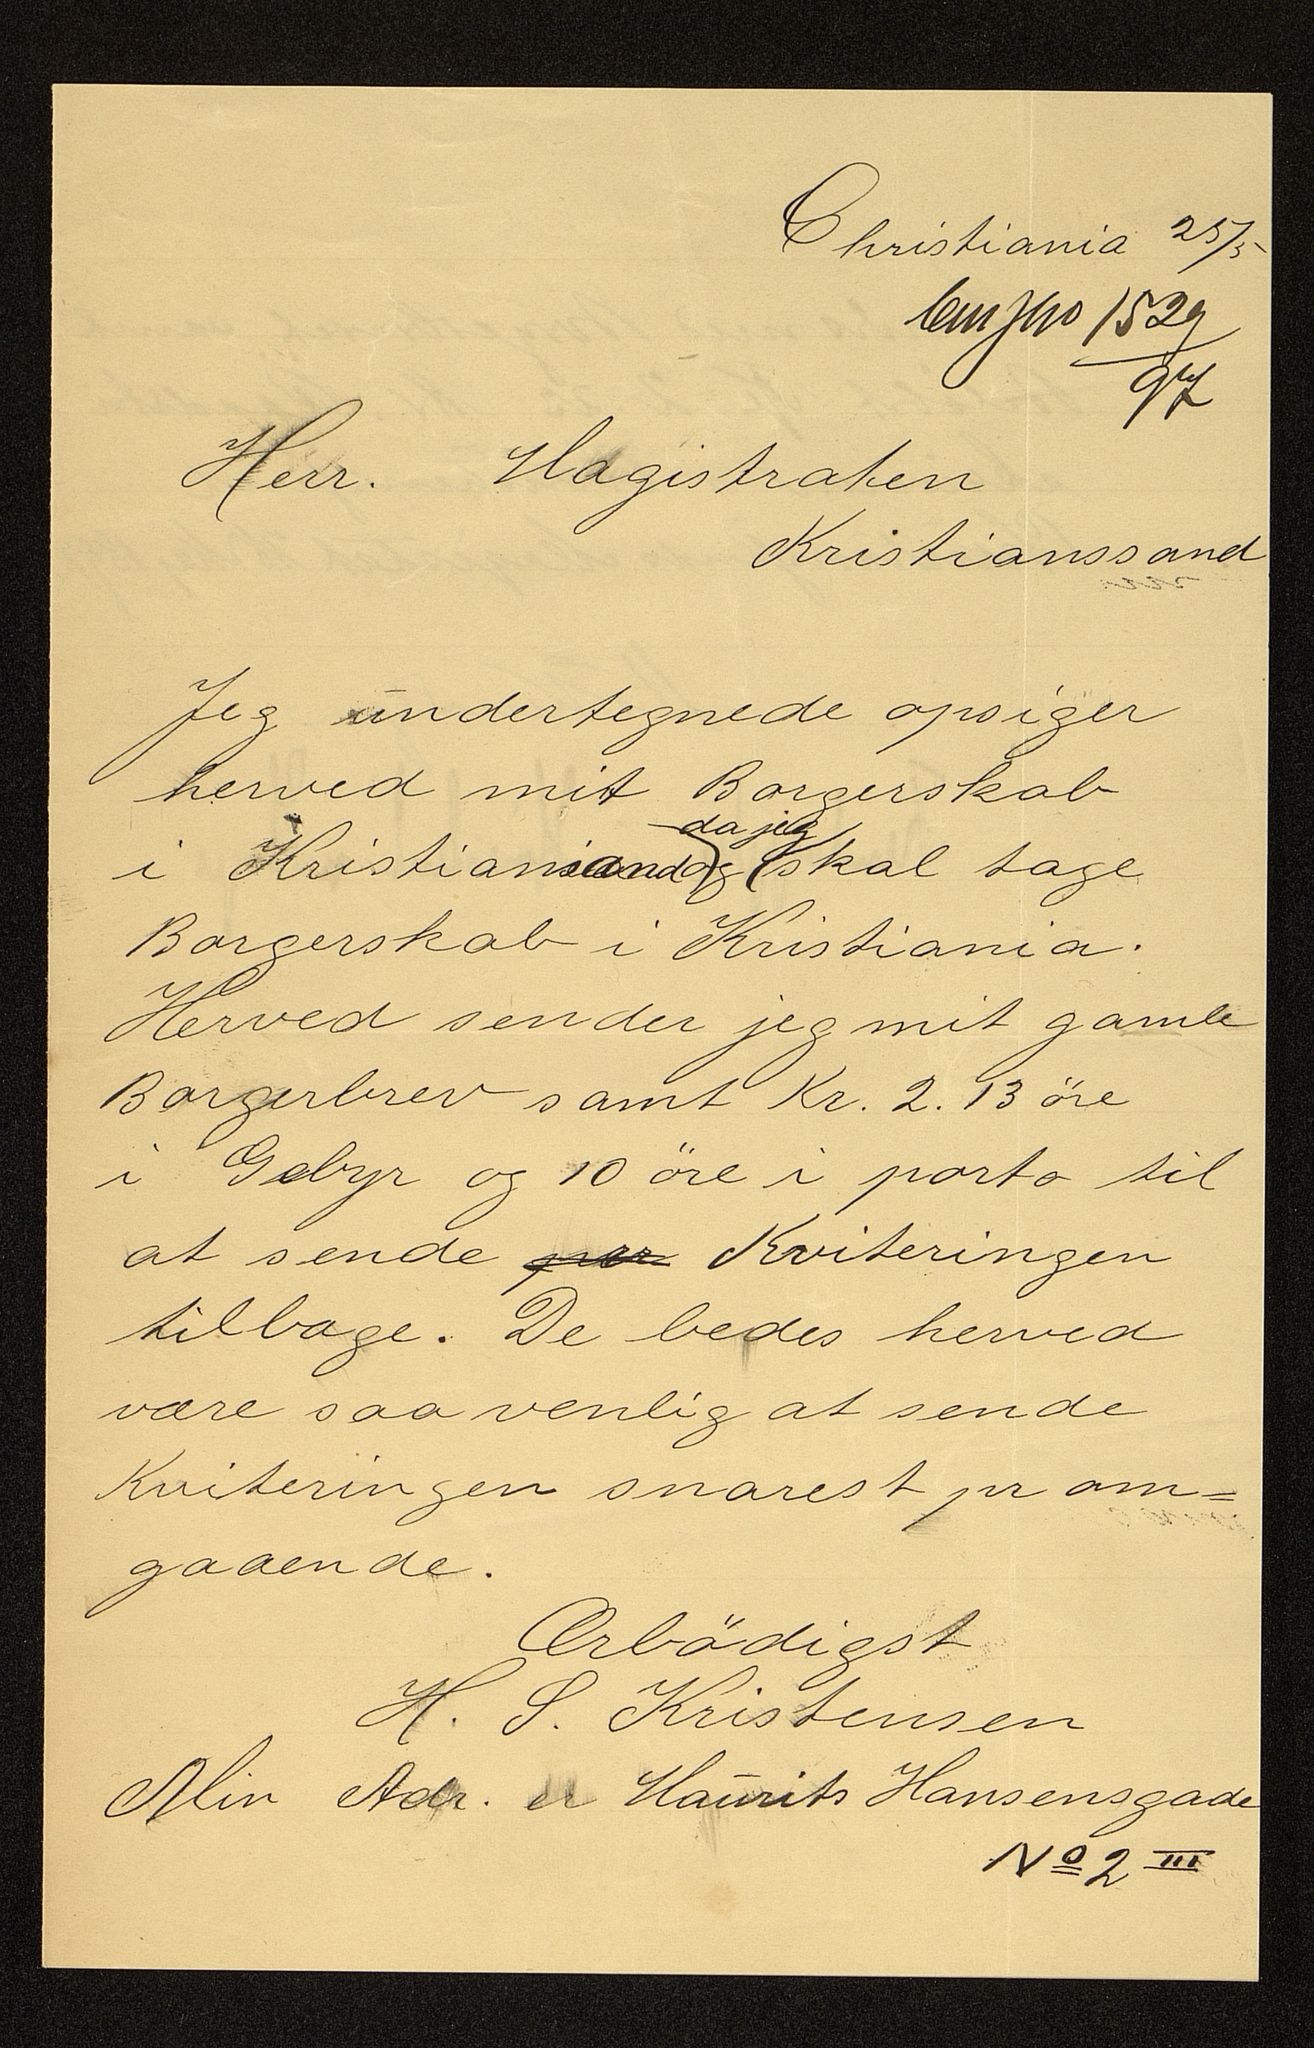 Christiania 25/5
1529
97
Herr. Magistraten
Kristianssand
Jeg undertegnede opsiger
herved mit Borgerskab
da jeg
i Kristianssand og skal tage
Borgerskab i Kristiania.
Herved sender jeg mit gamle
Borgerbrev samt Kr. 2. 13 öre
i Gebyr og 10 öre i porto til
at sende Kviteringen
tilbage. De bedes herved
være saa venlig at sende
Kviteringen snarest pr om=
gaaende.
Ærbödigst
H. S. Kristensen
Min Adr. er Maurits Hansensgade
No 2 III